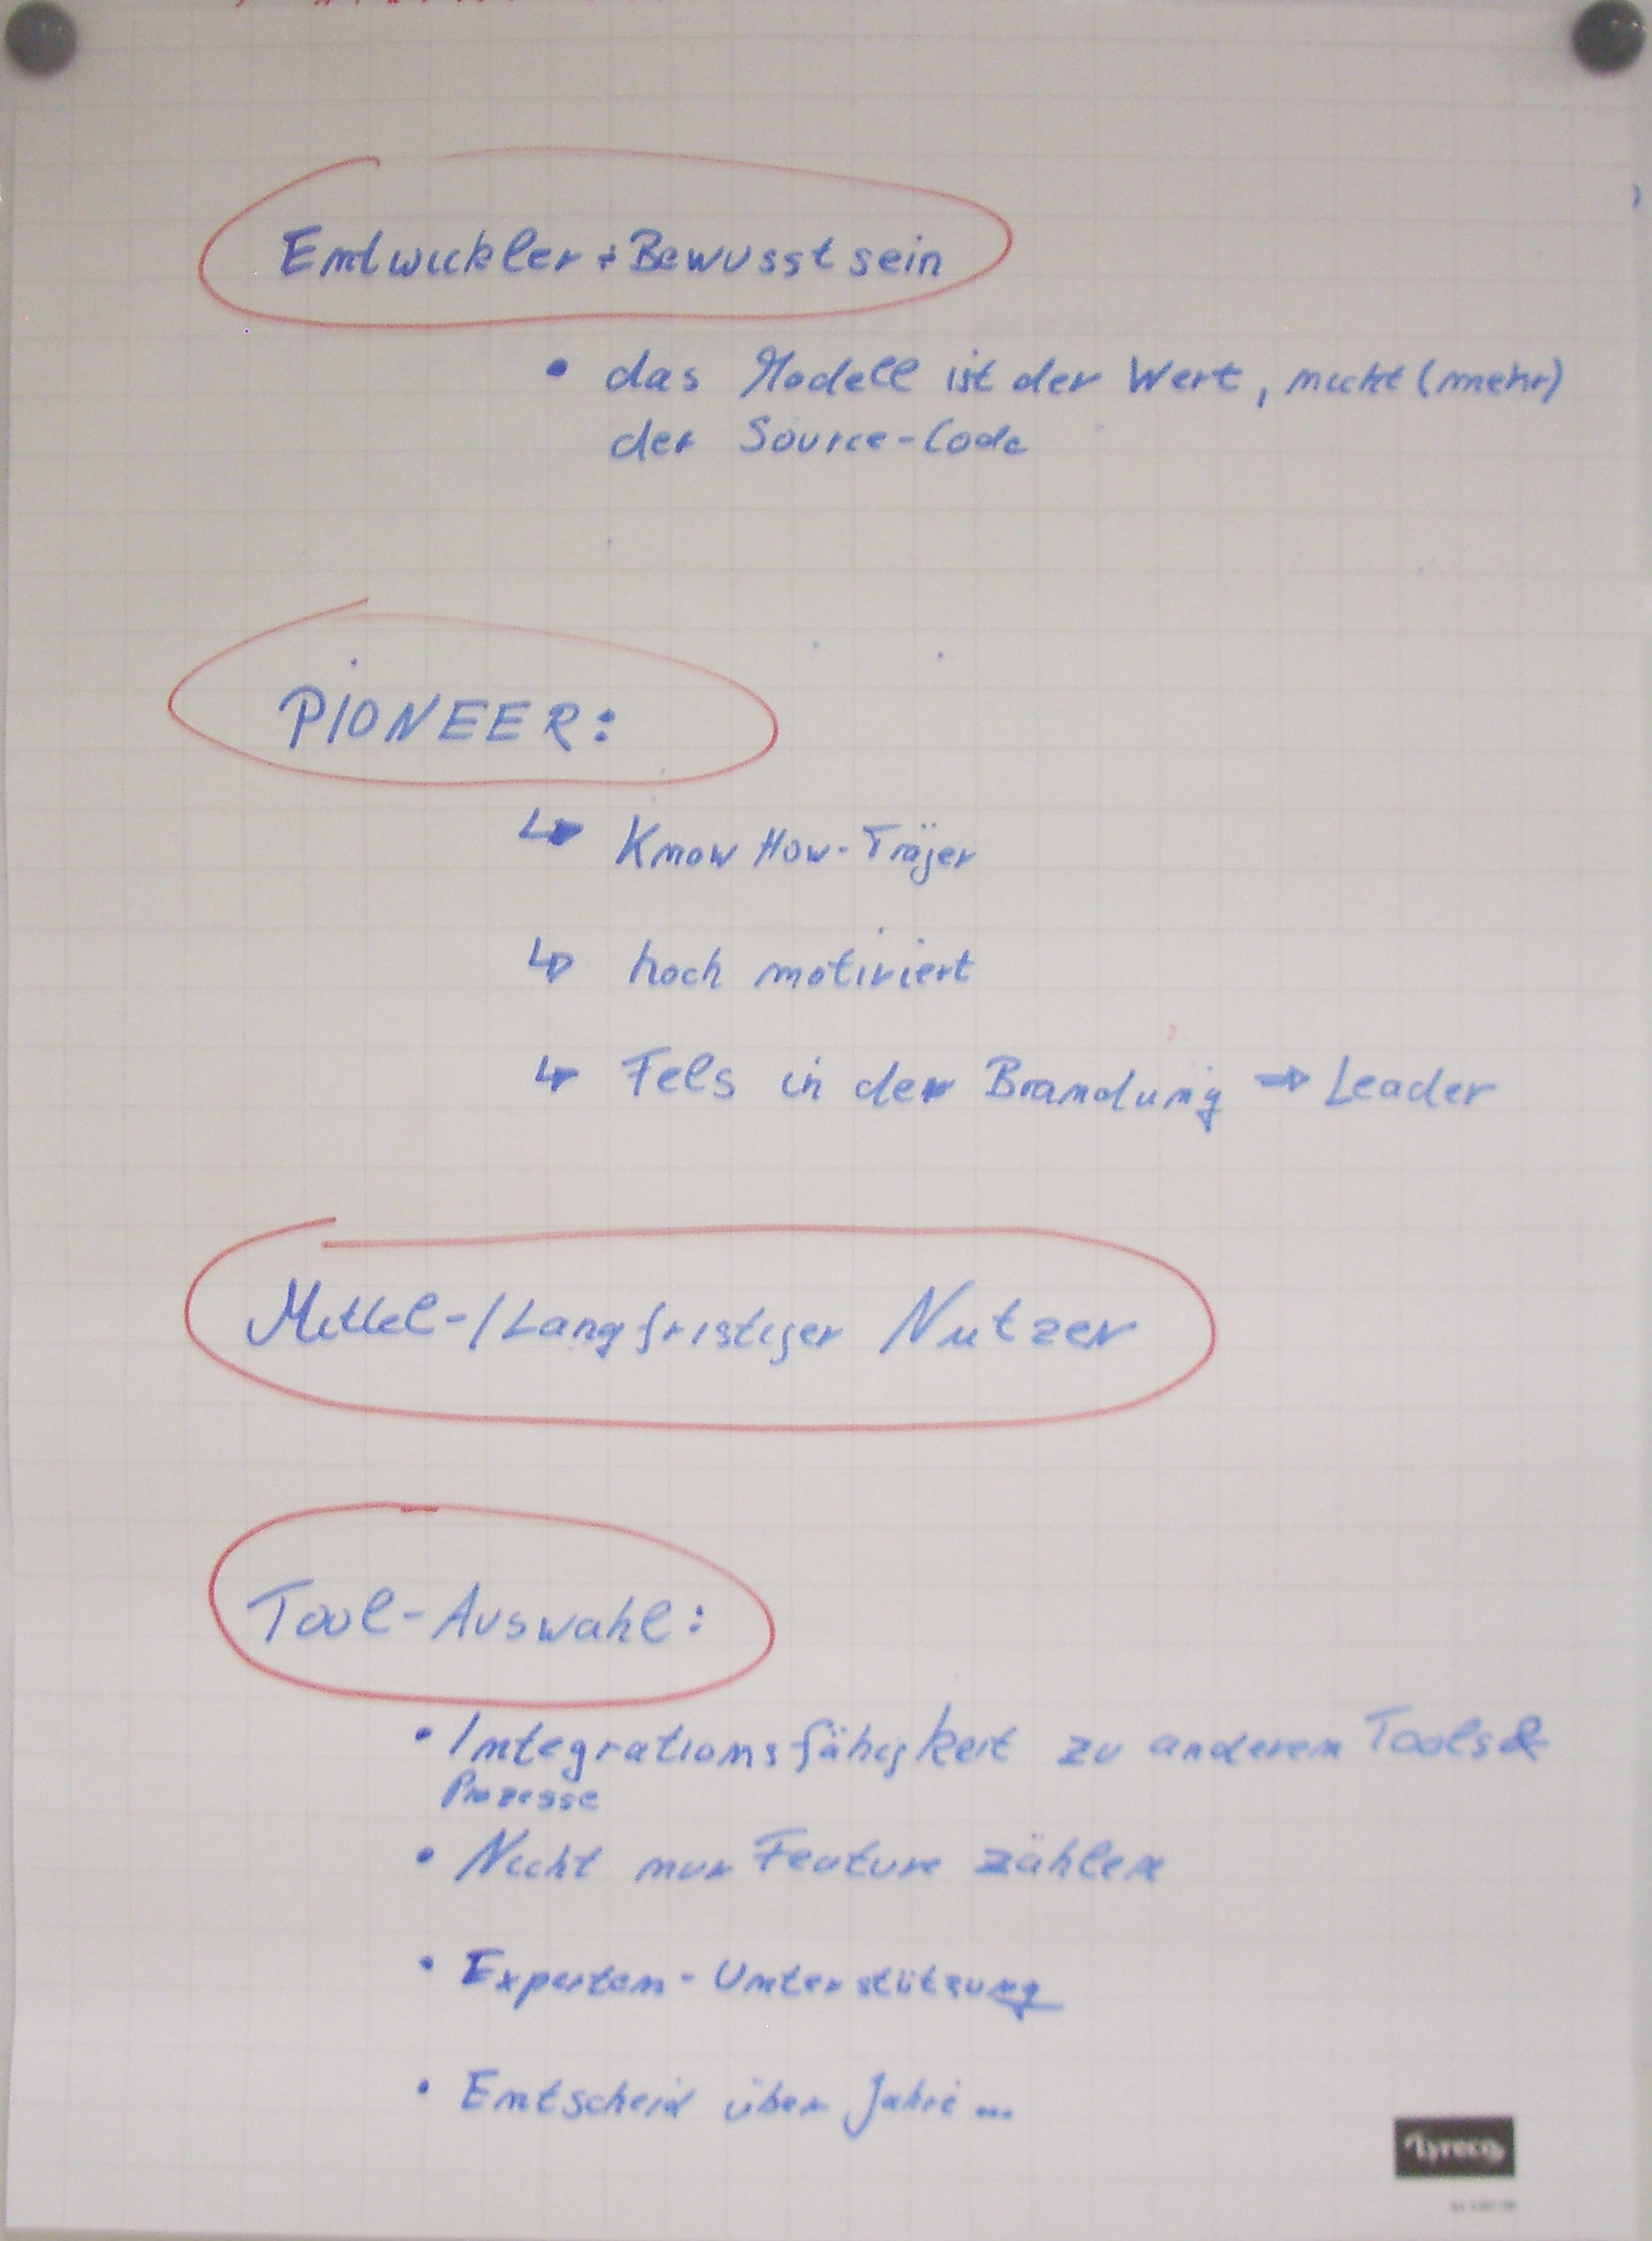 Entwickler + Bewusstsein
• das Modell ist der Wert, nicht (mehr)
der Source-Code
PIONEER:
↳ Know How-Träger
↳ hoch motiviert
↳ Fels in der Brandung ⇒ Leader
Mittel-/Langfristiger Nutzer
Tool-Auswahl:
• Integrationsfähigkeit zu anderen Tools &
Prozesse
• Nicht nur Feature zählen
• Experten-Unterstützung
• Entscheid über Jahre ...
Lyreco